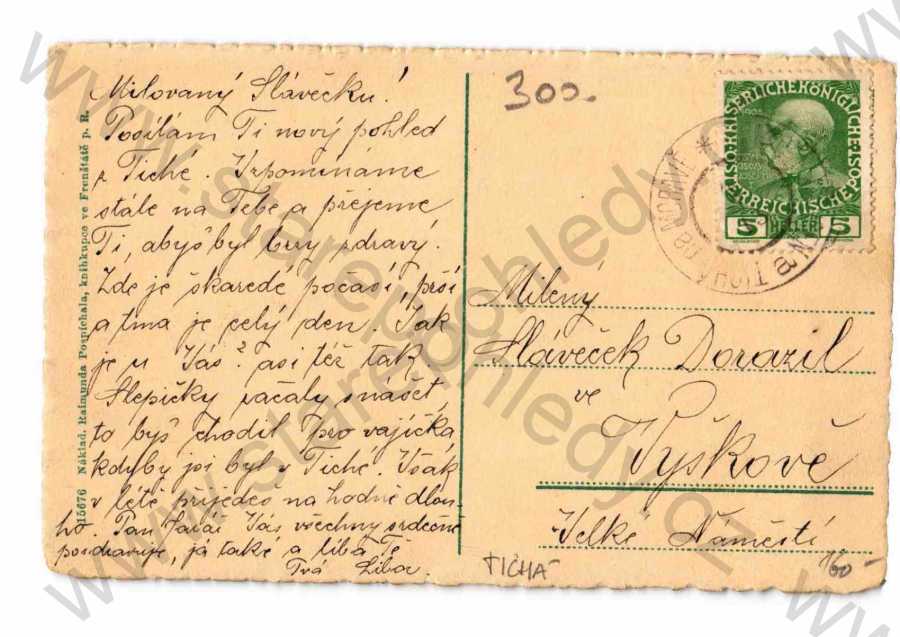 Milovaný Slávečku!
Posílám Ti nový pohled
z Tiché. Vzpomínáme
stále na Tebe a přejeme
Ti, abyś byl brzy zdravý.
Zde je škaredé počasí, prší
a tma je celý den. Jak
je u Vás? asi též tak.
Slepičky začaly snášet,
to byś chodil pro vajíčka
kdyby jsi byl v Tiché. Však
v létě přijedeš na hodně dlou-
ho. Pan Farář Vás všechny srdečně
pozdravuje, já také a líbá Tě
Tvá Libor.
15676 Náklad. Raimunda Pospíchala, knihkupce ve Frenštátě p. R.
300.-
KAISERLICHE KÖNIGLICHE
ÖSTERREICHISCHE POST
5 HELLER 5
TICHÁ NA MORAVĚ
Milený
Sláveček Dorazil
ve
Vyškově
Velké Náměstí
TICHÁ
www.starepohledy.cz